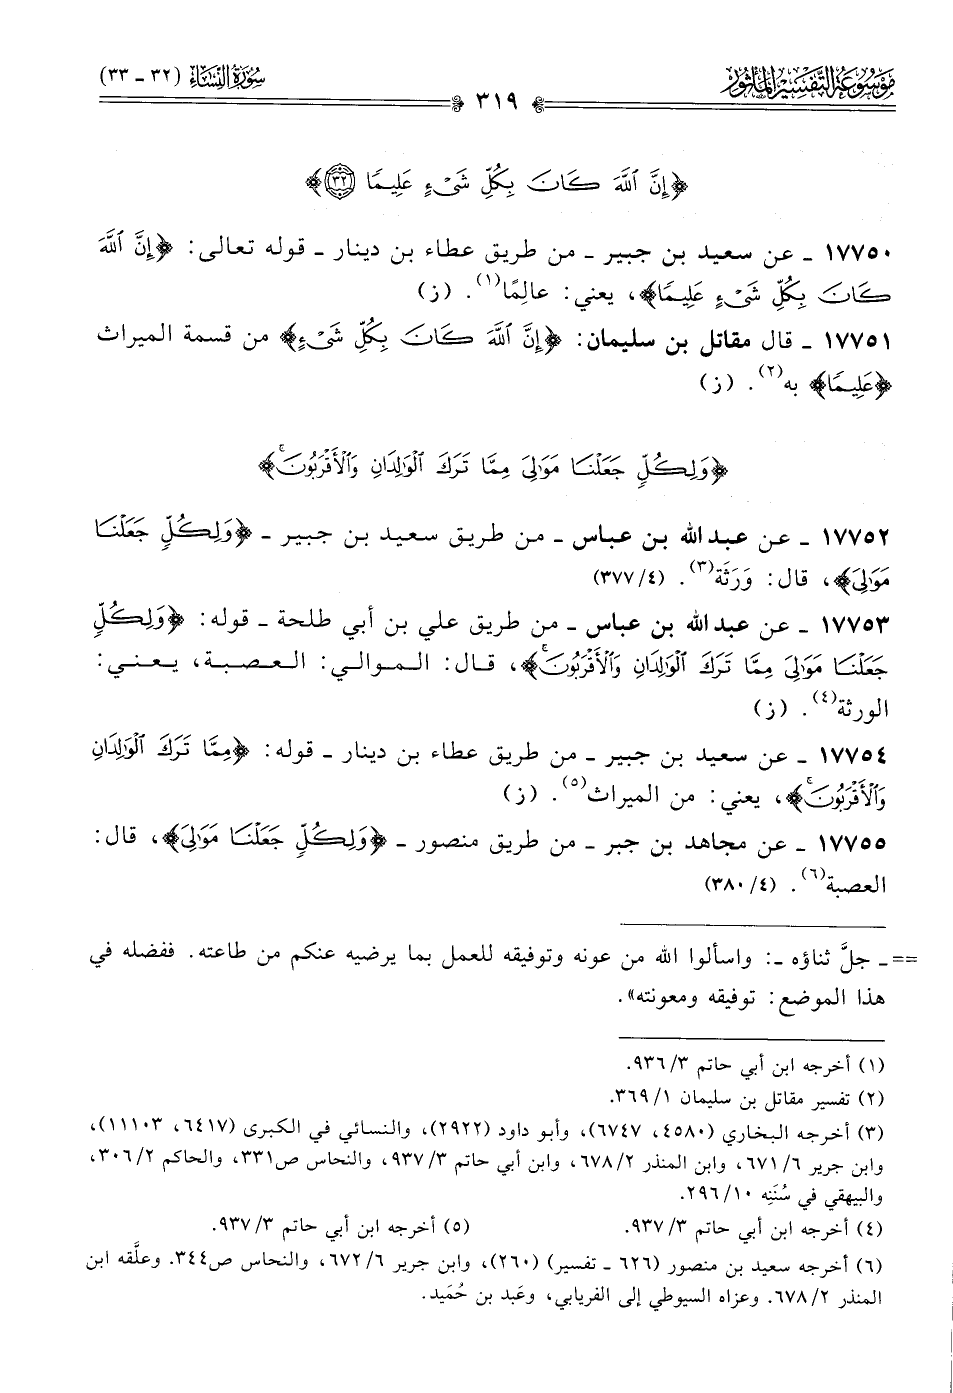 موسوعة التفسير المأثور
سورة النساء (٣٢ - ٣٣)
٣١٩
﴿إِنَّ ٱللَّهَ كَانَ بِكُلِّ شَىْءٍ عَلِيمًا ٣٢﴾
١٧٧٥٠ - عن سعيد بن جبير - من طريق عطاء بن دينار - قوله تعالى: ﴿إِنَّ ٱللَّهَ
كَانَ بِكُلِّ شَىْءٍ عَلِيمًا﴾، يعني: عالِمًا(١). (ز)
١٧٧٥١ - قال مقاتل بن سليمان: ﴿إِنَّ ٱللَّهَ كَانَ بِكُلِّ شَىْءٍ﴾ من قسمة الميراث
﴿عَلِيمًا﴾ به(٢). (ز)
﴿وَلِكُلٍّ جَعَلْنَا مَوَٰلِىَ مِمَّا تَرَكَ ٱلْوَٰلِدَانِ وَٱلْأَقْرَبُونَۚ﴾
١٧٧٥٢ - عن عبد الله بن عباس - من طريق سعيد بن جبير - ﴿وَلِكُلٍّ جَعَلْنَا
مَوَٰلِىَ﴾، قال: وَرَثَة(٣). (٣٧٧/٤)
١٧٧٥٣ - عن عبد الله بن عباس - من طريق علي بن أبي طلحة - قوله: ﴿وَلِكُلٍّ
جَعَلْنَا مَوَٰلِىَ مِمَّا تَرَكَ ٱلْوَٰلِدَانِ وَٱلْأَقْرَبُونَۚ﴾، قال: الموالي: العصبة، يعني:
الورثة(٤). (ز)
١٧٧٥٤ - عن سعيد بن جبير - من طريق عطاء بن دينار - قوله: ﴿مِمَّا تَرَكَ ٱلْوَٰلِدَانِ
وَٱلْأَقْرَبُونَۚ﴾، يعني: من الميراث(٥). (ز)
١٧٧٥٥ - عن مجاهد بن جبر - من طريق منصور - ﴿وَلِكُلٍّ جَعَلْنَا مَوَٰلِىَ﴾، قال:
العصبة(٦). (٣٨٠/٤)
== - جلَّ ثناؤه -: واسألوا الله من عونه وتوفيقه للعمل بما يرضيه عنكم من طاعته. ففضله في
هذا الموضع: توفيقه ومعونته».
(١) أخرجه ابن أبي حاتم ٩٣٦/٣.
(٢) تفسير مقاتل بن سليمان ٣٦٩/١.
(٣) أخرجه البخاري (٤٥٨٠، ٦٧٤٧)، وأبو داود (٢٩٢٢)، والنسائي في الكبرى (٦٤١٧، ١١١٠٣)،
وابن جرير ٦٧١/٦، وابن المنذر ٦٧٨/٢، وابن أبي حاتم ٩٣٧/٣، والنحاس ص٣٣١، والحاكم ٣٠٦/٢،
والبيهقي في سُنَنِه ٢٩٦/١٠.
(٤) أخرجه ابن أبي حاتم ٩٣٧/٣. (٥) أخرجه ابن أبي حاتم ٩٣٧/٣.
(٦) أخرجه سعيد بن منصور (٦٢٦ - تفسير) (٢٦٠)، وابن جرير ٦٧٢/٦، والنحاس ص٣٤٤. وعلَّقه ابن
المنذر ٦٧٨/٢. وعزاه السيوطي إلى الفريابي، وعَبد بن حُمَيد.